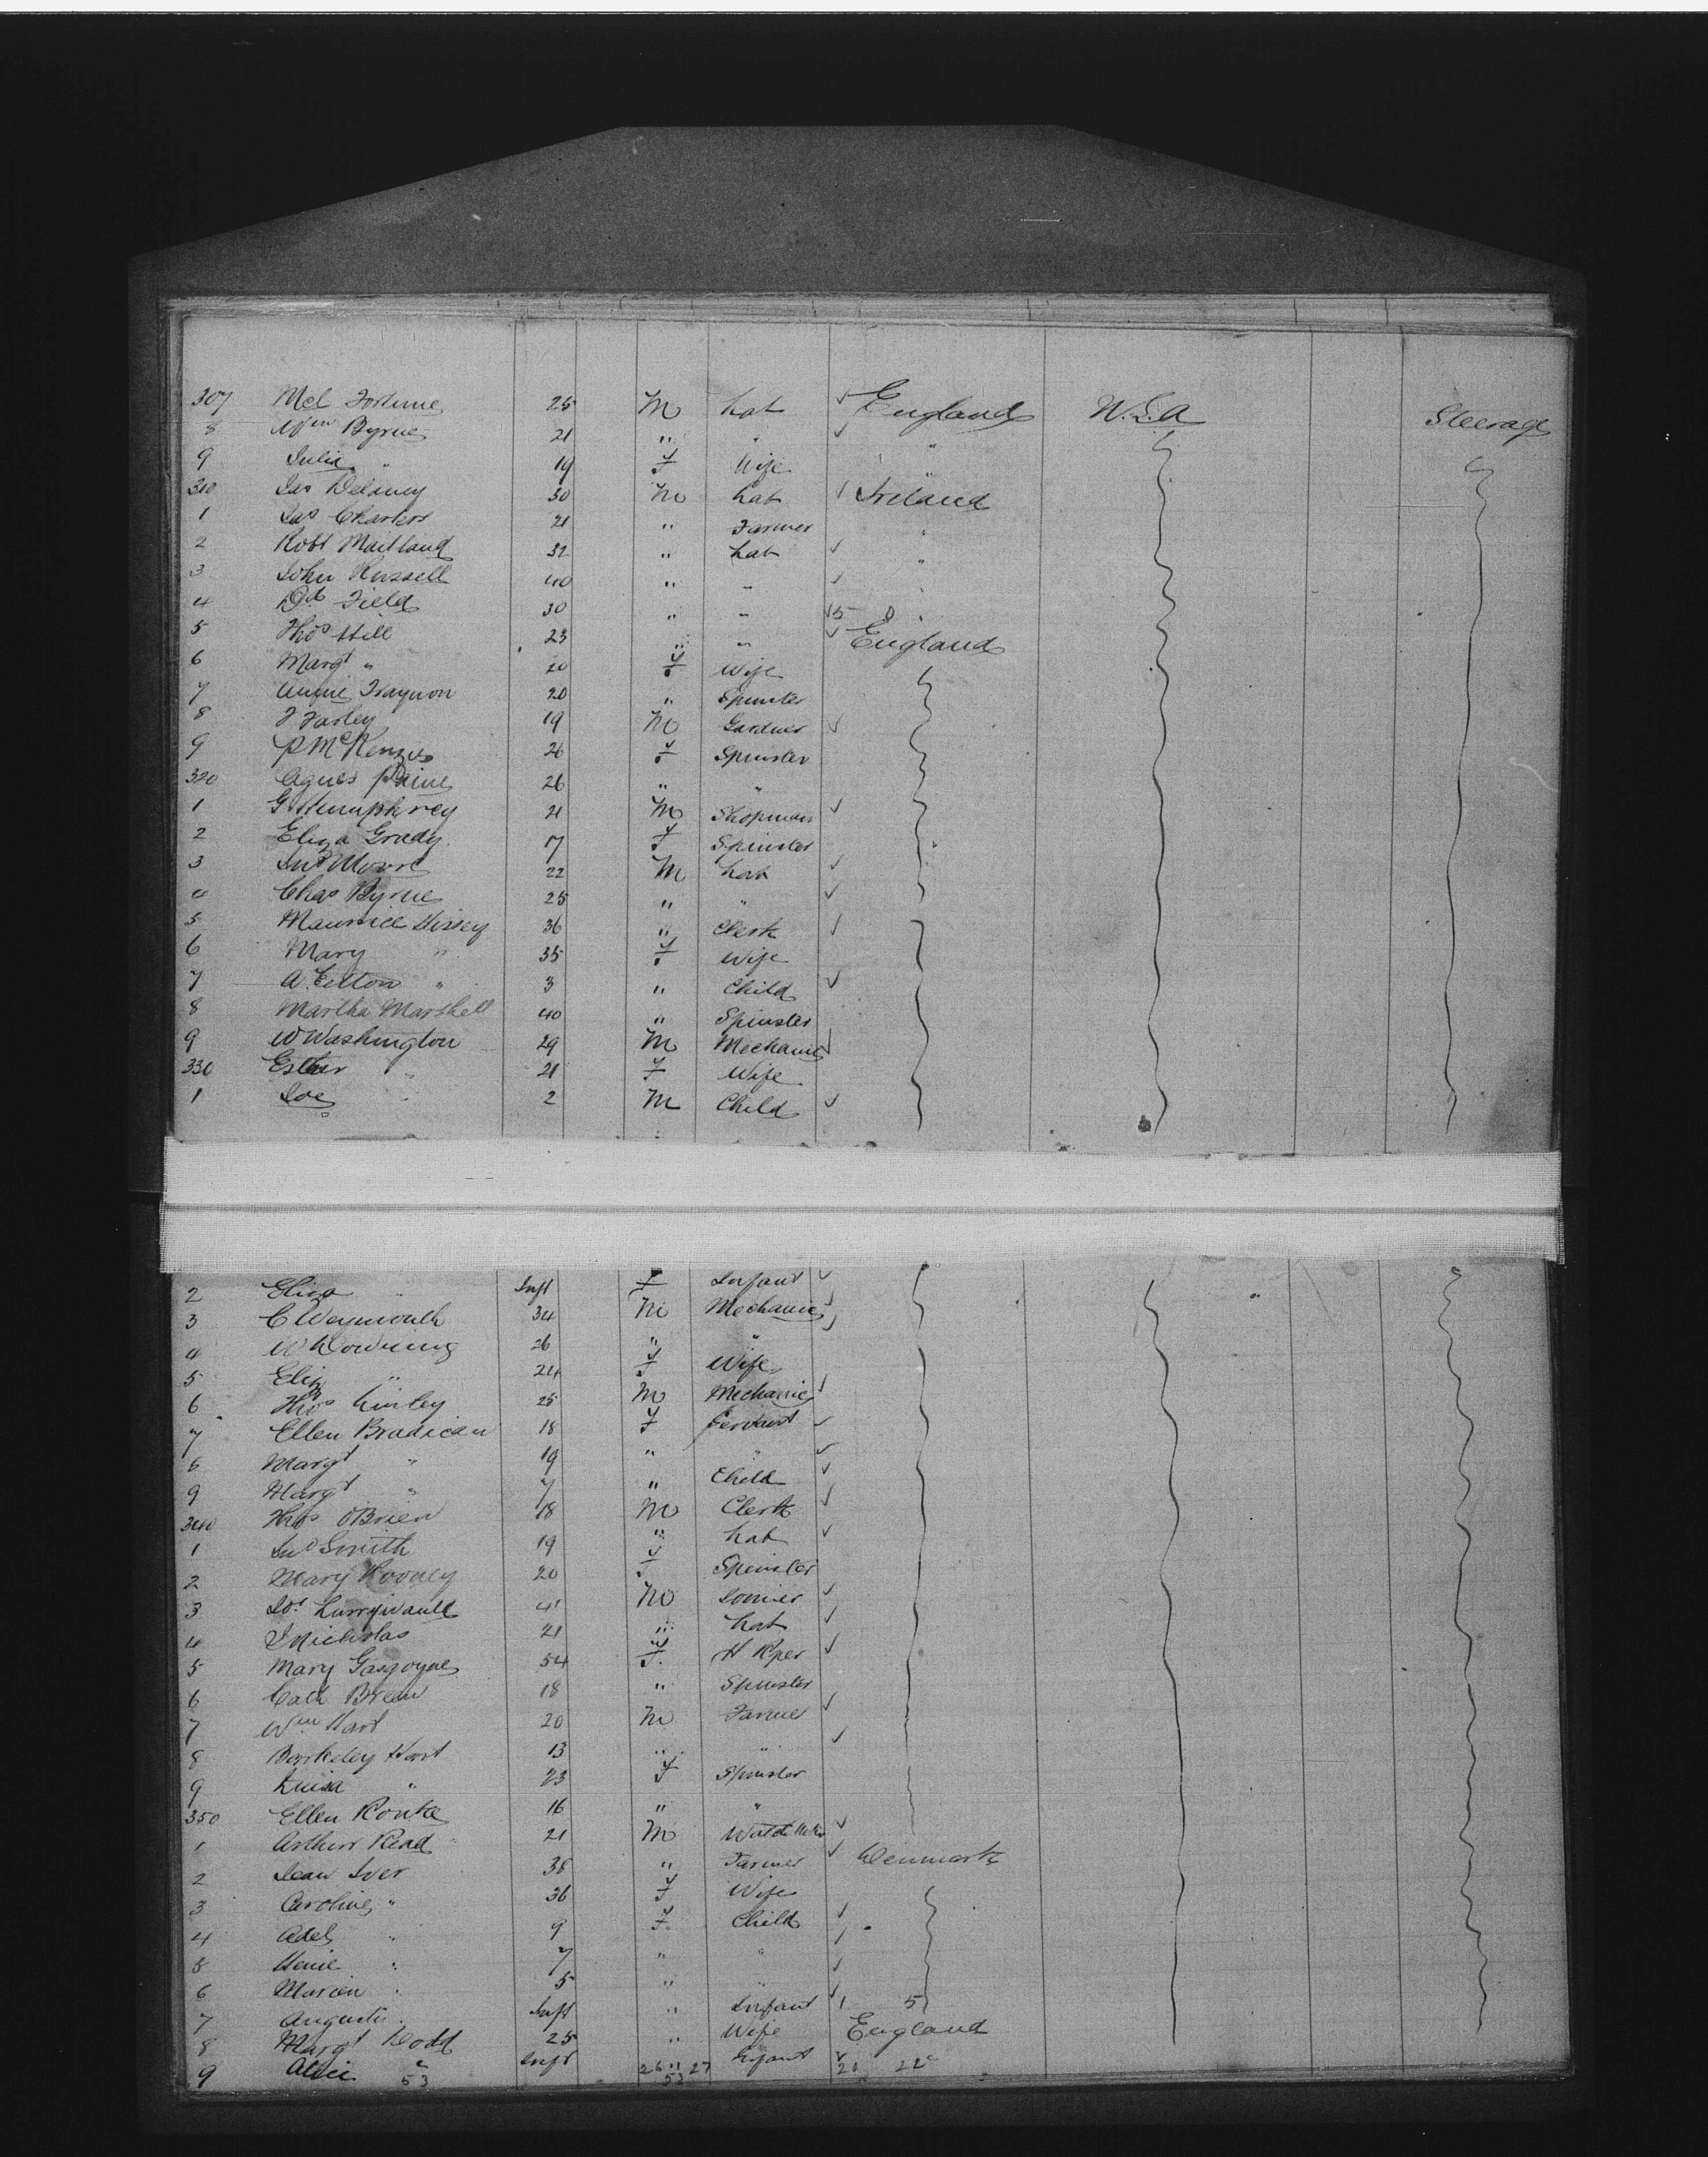 307 Mcl Fortune 25 M Lab ✓ England U.S.A Steerage
8 Wm Byrne 21 " " ✓ "
9 Julia " 19 F Wife "
310 Jas Delaney 30 M Lab ✓ Ireland
1 Jas Charters 21 " Farmer "
2 Robt Maitland 32 " Lab ✓ "
3 John Russell 40 " " ✓
4 Dd Field 30 " " ✓ 5
5 Thos Hill 23 " " ✓ England
6 Margt " 20 F Wife
7 Annie Traynon 20 " Spinster
8 F Farley 19 M Gardner ✓
9 P McKenzie 26 F Spinster
320 Agnes Paine 26 " "
1 G Humphrey 21 M Shopman ✓
2 Eliza Grady 17 F Spinster
3 Jno Moore 22 M Lab ✓
4 Chas Byrne 25 " " ✓
5 Maurice Hissey 36 " Clerk ✓
6 Mary " 35 F Wife
7 A. Eelton " 3 " Child ✓
8 Martha Marshell 40 " Spinster
9 W Washington 29 M Mechanic ✓
330 Esther " 21 F Wife
1 Joe " 2 M Child ✓
2 Eliza " Inft F Infant ✓
3 C Weymouth 34 M Mechanic ✓
4 W Downing 26 " " ✓
5 Eliz " 24 F Wife
6 Thos Linley 25 M Mechanic ✓
7 Ellen Bradican 18 F Servant ✓
8 Margt " 19 " " ✓
9 Margt " 7 " Child ✓
340 Thos OBrien 18 M Clerk ✓
1 Jno Smith 19 " Lab ✓
2 Mary Rooney 20 F Spinster
3 41 M Joiner ✓
4 J Nicholas 21 " Lab ✓
5 Mary Gasgoyne 54 F H Kper ✓
6 Cath Breen 18 " Spinster
7 Wm Hart 20 M Farmer ✓
8 Barkeley Hart 13 " " ✓
9 Luisa " 23 F Spinster
350 Ellen Rorke 16 " "
1 Arthur Read 21 M ✓
2 Jean Iver 38 " Farmer ✓ Denmark
3 Caroline " 36 F Wife
4 Adel " 9 F Child ✓
5 " 7 " " ✓
6 Marien " 5 " " ✓
7 Augusta " Inft " Infant ✓ 5
8 Margt Dodd 25 " Wife England
9 Alice " Inft " Infant ✓
53 26 27 53 20 22